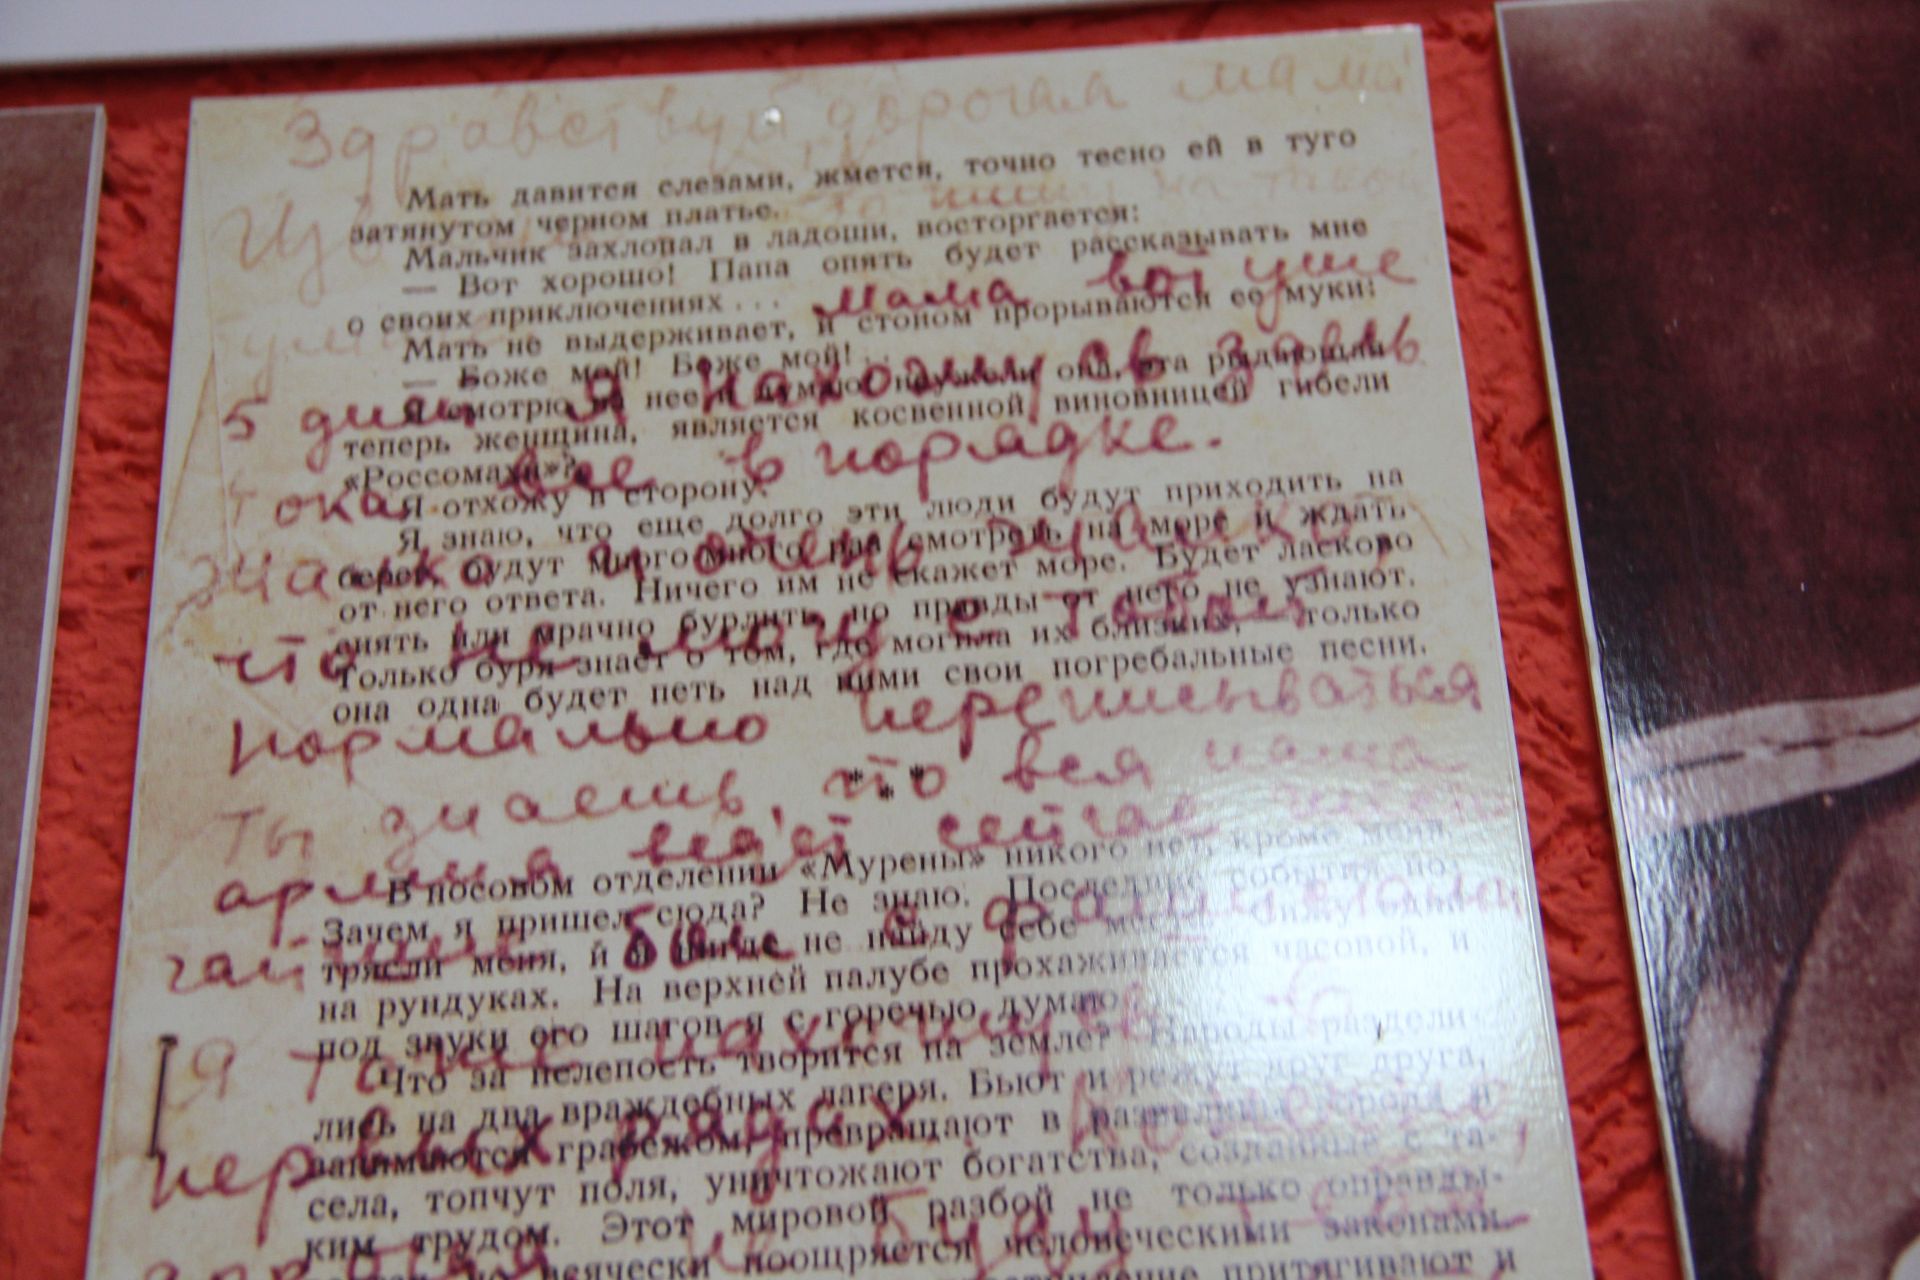 Здравствуй дорогая мама
Мать давится слезами, жмется, точно тесно ей в туго
затянутом черном платье.
Мальчик захлопал в ладоши, восторгается:
— Вот хорошо! Папа опять будет рассказывать мне
о своих приключениях...
мама вот уже
Мать не выдерживает, и стоном прорываются ее муки:
— Боже мой! Боже мой!..
5 дней я нахожусь здесь
Я смотрю на нее и думаю: неужели она, эта рыдающая
теперь женщина, является косвенной виновницей гибели
«Россомахи»?
пока все в порядке.
Я отхожу в сторону.
Я знаю, что еще долго эти люди будут приходить на
берег, будут много-много раз смотреть на море и ждать
от него ответа. Ничего им не скажет море. Будет ласково
сиять или мрачно бурлить, но правды от него не узнают.
что не могу с тобой
Только буря знает о том, где могила их близких, — только
она одна будет петь над ними свои погребальные песни.
нормально переписываться
ты знаешь, что вся наша
* * *
армия ведет сейчас
В носовом отделении «Мурены» никого нет, кроме меня.
Зачем я пришел сюда? Не знаю. Последние события по-
трясли меня, и я нигде не найду себе места. Сижу один
бои с фашистами
на рундуках. На верхней палубе прохаживается часовой, и
под звуки его шагов я с горечью думаю:
я тоже нахожусь в
Что за нелепость творится на земле? Народы раздели-
лись на два враждебных лагеря. Бьют и режут друг друга,
первых рядах.
занимаются грабежом, превращают в развалины города и
села, топчут поля, уничтожают богатства, созданные с та-
ким трудом. Этот мировой разбой не только оправды-
всячески поощряется человеческими законами.
буду
притягивают и